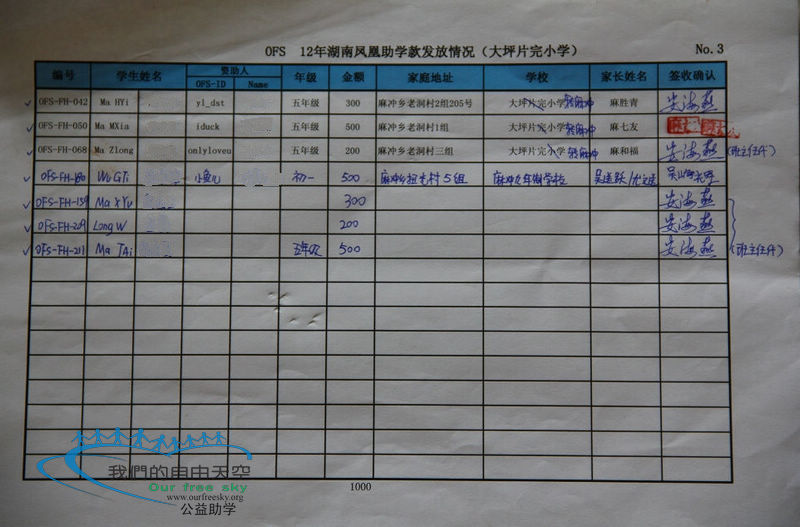 OFS 12年湖南凤凰助学款发放情况（大坪片完小学） No.3
编号 学生姓名 资助人 年级 金额 家庭地址 学校 家长姓名 签收确认
OFS-ID Name
OFS-FH-042 Ma HYi yl_dst 五年级 300 麻冲乡老洞村2组205号 大坪片完小学 麻胜青
OFS-FH-050 Ma MXia iduck 五年级 500 麻冲乡老洞村1组 大坪片完小学 麻七友
OFS-FH-068 Ma Zlong onlyloveu 五年级 200 麻冲乡老洞村三组 大坪片完小学 麻和福 (班主任代)
OFS-FH-180 Wu GTi 小鱼儿 初一 500 村5组
OFS-FH-159 Ma XYu 300
OFS-FH-209 Long W 200
OFS-FH-211 Ma TAi 五年级 500 (班主任代)
1000
我們的自由天空
Our free sky
www.ourfreesky.org
公益助学